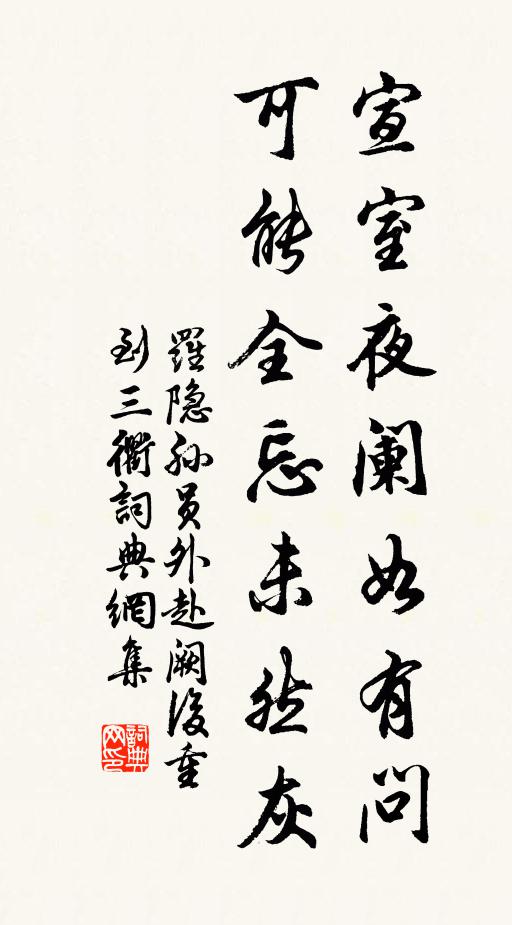 宣室夜阑如有问
可能全忘未然灰
羅隐孙员外赴阙後重
到三衢詞典網集
詞典网印